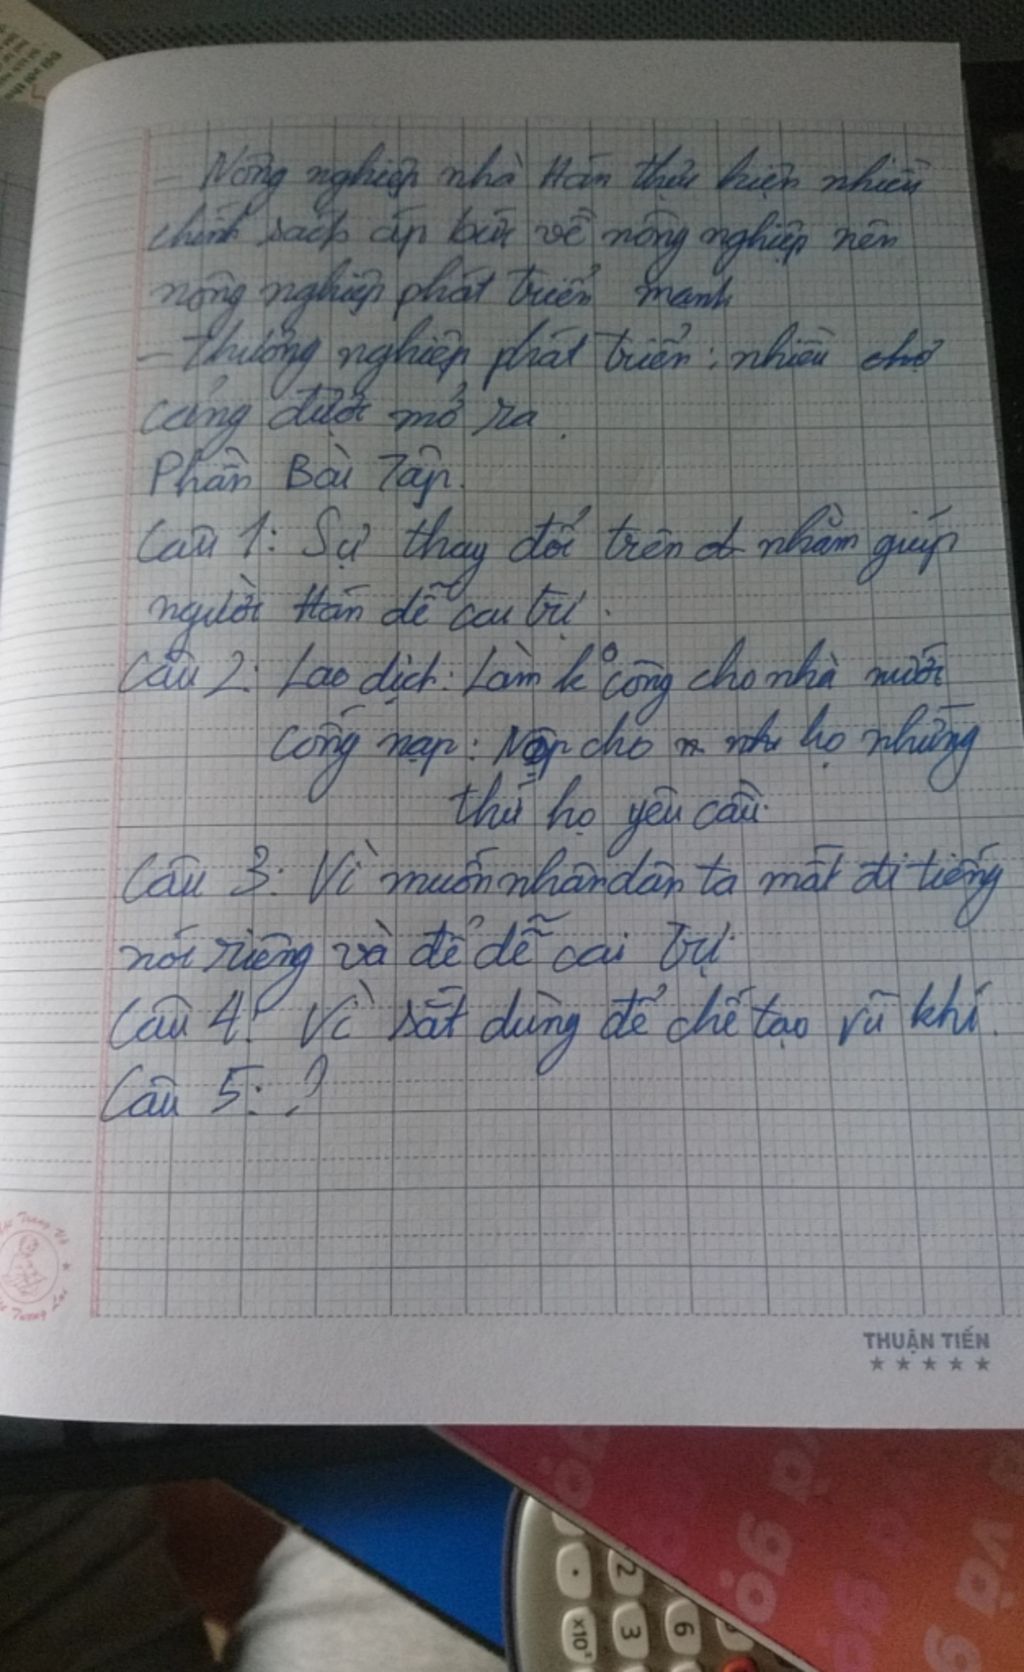 - Nông nghiệp nhà Hán thực hiện nhiều
chính sách áp bức về nông nghiệp nên
nông nghiệp phát triển mạnh
- Thương nghiệp phát triển: nhiều chợ
cảng được mở ra.
Phần Bài Tập.
Câu 1: Sự thay đổi trên nhằm giúp
người Hán dễ cai trị.
Câu 2: Lao dịch: Làm k° công cho nhà nước
Cống nạp: Nộp cho họ những
thứ họ yêu cầu.
Câu 3: Vì muốn nhân dân ta mất đi tiếng
nói riêng và để dễ cai trị.
Câu 4: Vì sắt dùng để chế tạo vũ khí.
Câu 5: ?
THUẬN TIẾN
2
3
6
x10ˣ